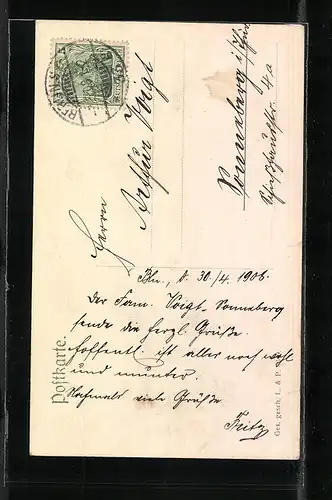 Herrn
Arthur Voigt
Sonneberg i/Thür
4a
Postkarte.
Bln., d. 30./4. 1906.
Der Fam. Voigt-Sonneberg
sende die herzl. Grüße.
Hoffentl. ist alles noch wohl
und munter.
Nochmals viele Grüße
Fritz
Ges. gesch. L. & P.